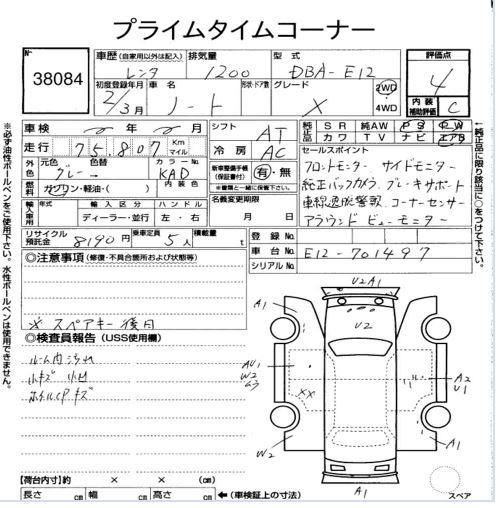 プライムタイムコーナー
No
38084
車歴 (自家用以外は記入) レンタ
排気量 1200
型式 DBA-E12
初度登録年月 2/3月
車名 ノート
形状・ドア数
グレード X
2WD
4WD
評価点 4
内装補助評価 C
車検 年 月
走行 75,807 Km マイル
外色 元色 グレー 色替
カラーNo. KAD
内装色
燃料 ガソリン・軽油・( )
輸入車用 年式 輸入区分 ディーラー・並行 ハンドル 左・右
リサイクル預託金 8190円
乗車定員 5人
積載量 t
シフト AT
冷房 AC
新車整備手帳(保証書付) 有・無
※書類と一緒に保管下さい。
名義変更期限
月 日
純正品 SR 純AW PS PW
カワ TV ナビ エアB
セールスポイント
フロントモニター サイドモニター
純正バックカメラ ブレーキサポート
車線逸脱警報 コーナーセンサー
アラウンドビューモニター
登録No.
車台No. E12-701497
シリアルNo.
◎注意事項 (修復・不具合箇所および状態等)
※スペアキー後日
◎検査員報告 (USS使用欄)
ルーム内汚れ
小キズ 小凹
ホイルCPキズ
【荷台内寸】 約 × × (cm)
長さ cm 幅 cm 高さ cm ←(車検証上の寸法)
※必ず油性ボールペンをご使用下さい。水性ボールペンは使用できません。
←純正品に限り該当に○をつけて下さい
U2A1
A1
A1
U2
AU1
W2
ムラ
XX
A2
U1
W2
A1
A1
スペア